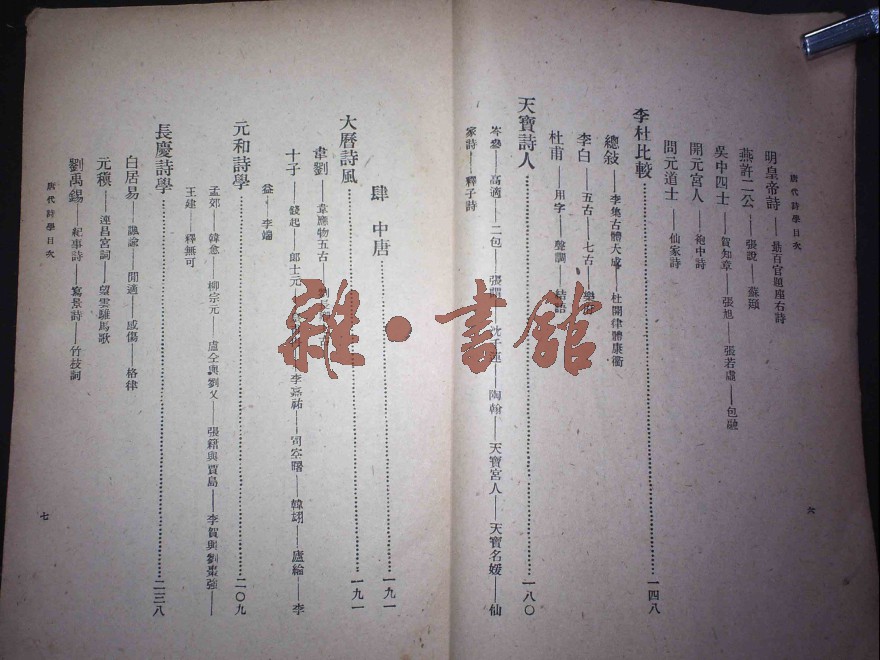 唐代詩學目次
明皇帝詩——喆百官題座右詩
燕許二公——張說——蘇頲
吳中四士——賀知章——張旭——張若虛——包融
開元宮人——袍中詩
問元道士——仙家詩
李杜比較⋯⋯一四八
總敍——李集古體大成——杜開律體康衢
李白——五古——七古
杜甫——用字——聲調——結語
天寶詩人⋯⋯一八〇
岑參——高適——二包——陶翰——天寶宮人——天寶名媛——仙
家詩——釋子詩
六
肆 中唐⋯⋯一九一
大曆詩風⋯⋯一九一
韋劉——韋應物五古
十子——錢起——郎士元——李嘉祐——司空曙——韓翃——盧綸——李
益——李端
元和詩學⋯⋯二〇九
孟郊——韓愈——柳宗元——盧仝與劉叉——張籍與賈島——李賀與劉棗強——
王建——釋無可
長慶詩學⋯⋯二三八
白居易——諷諭——閒適——感傷——格律
元稹——連昌宮詞——望雲騅馬歌
劉禹錫——紀事詩——寫景詩——竹枝詞
唐代詩學目次
七
雜·書館